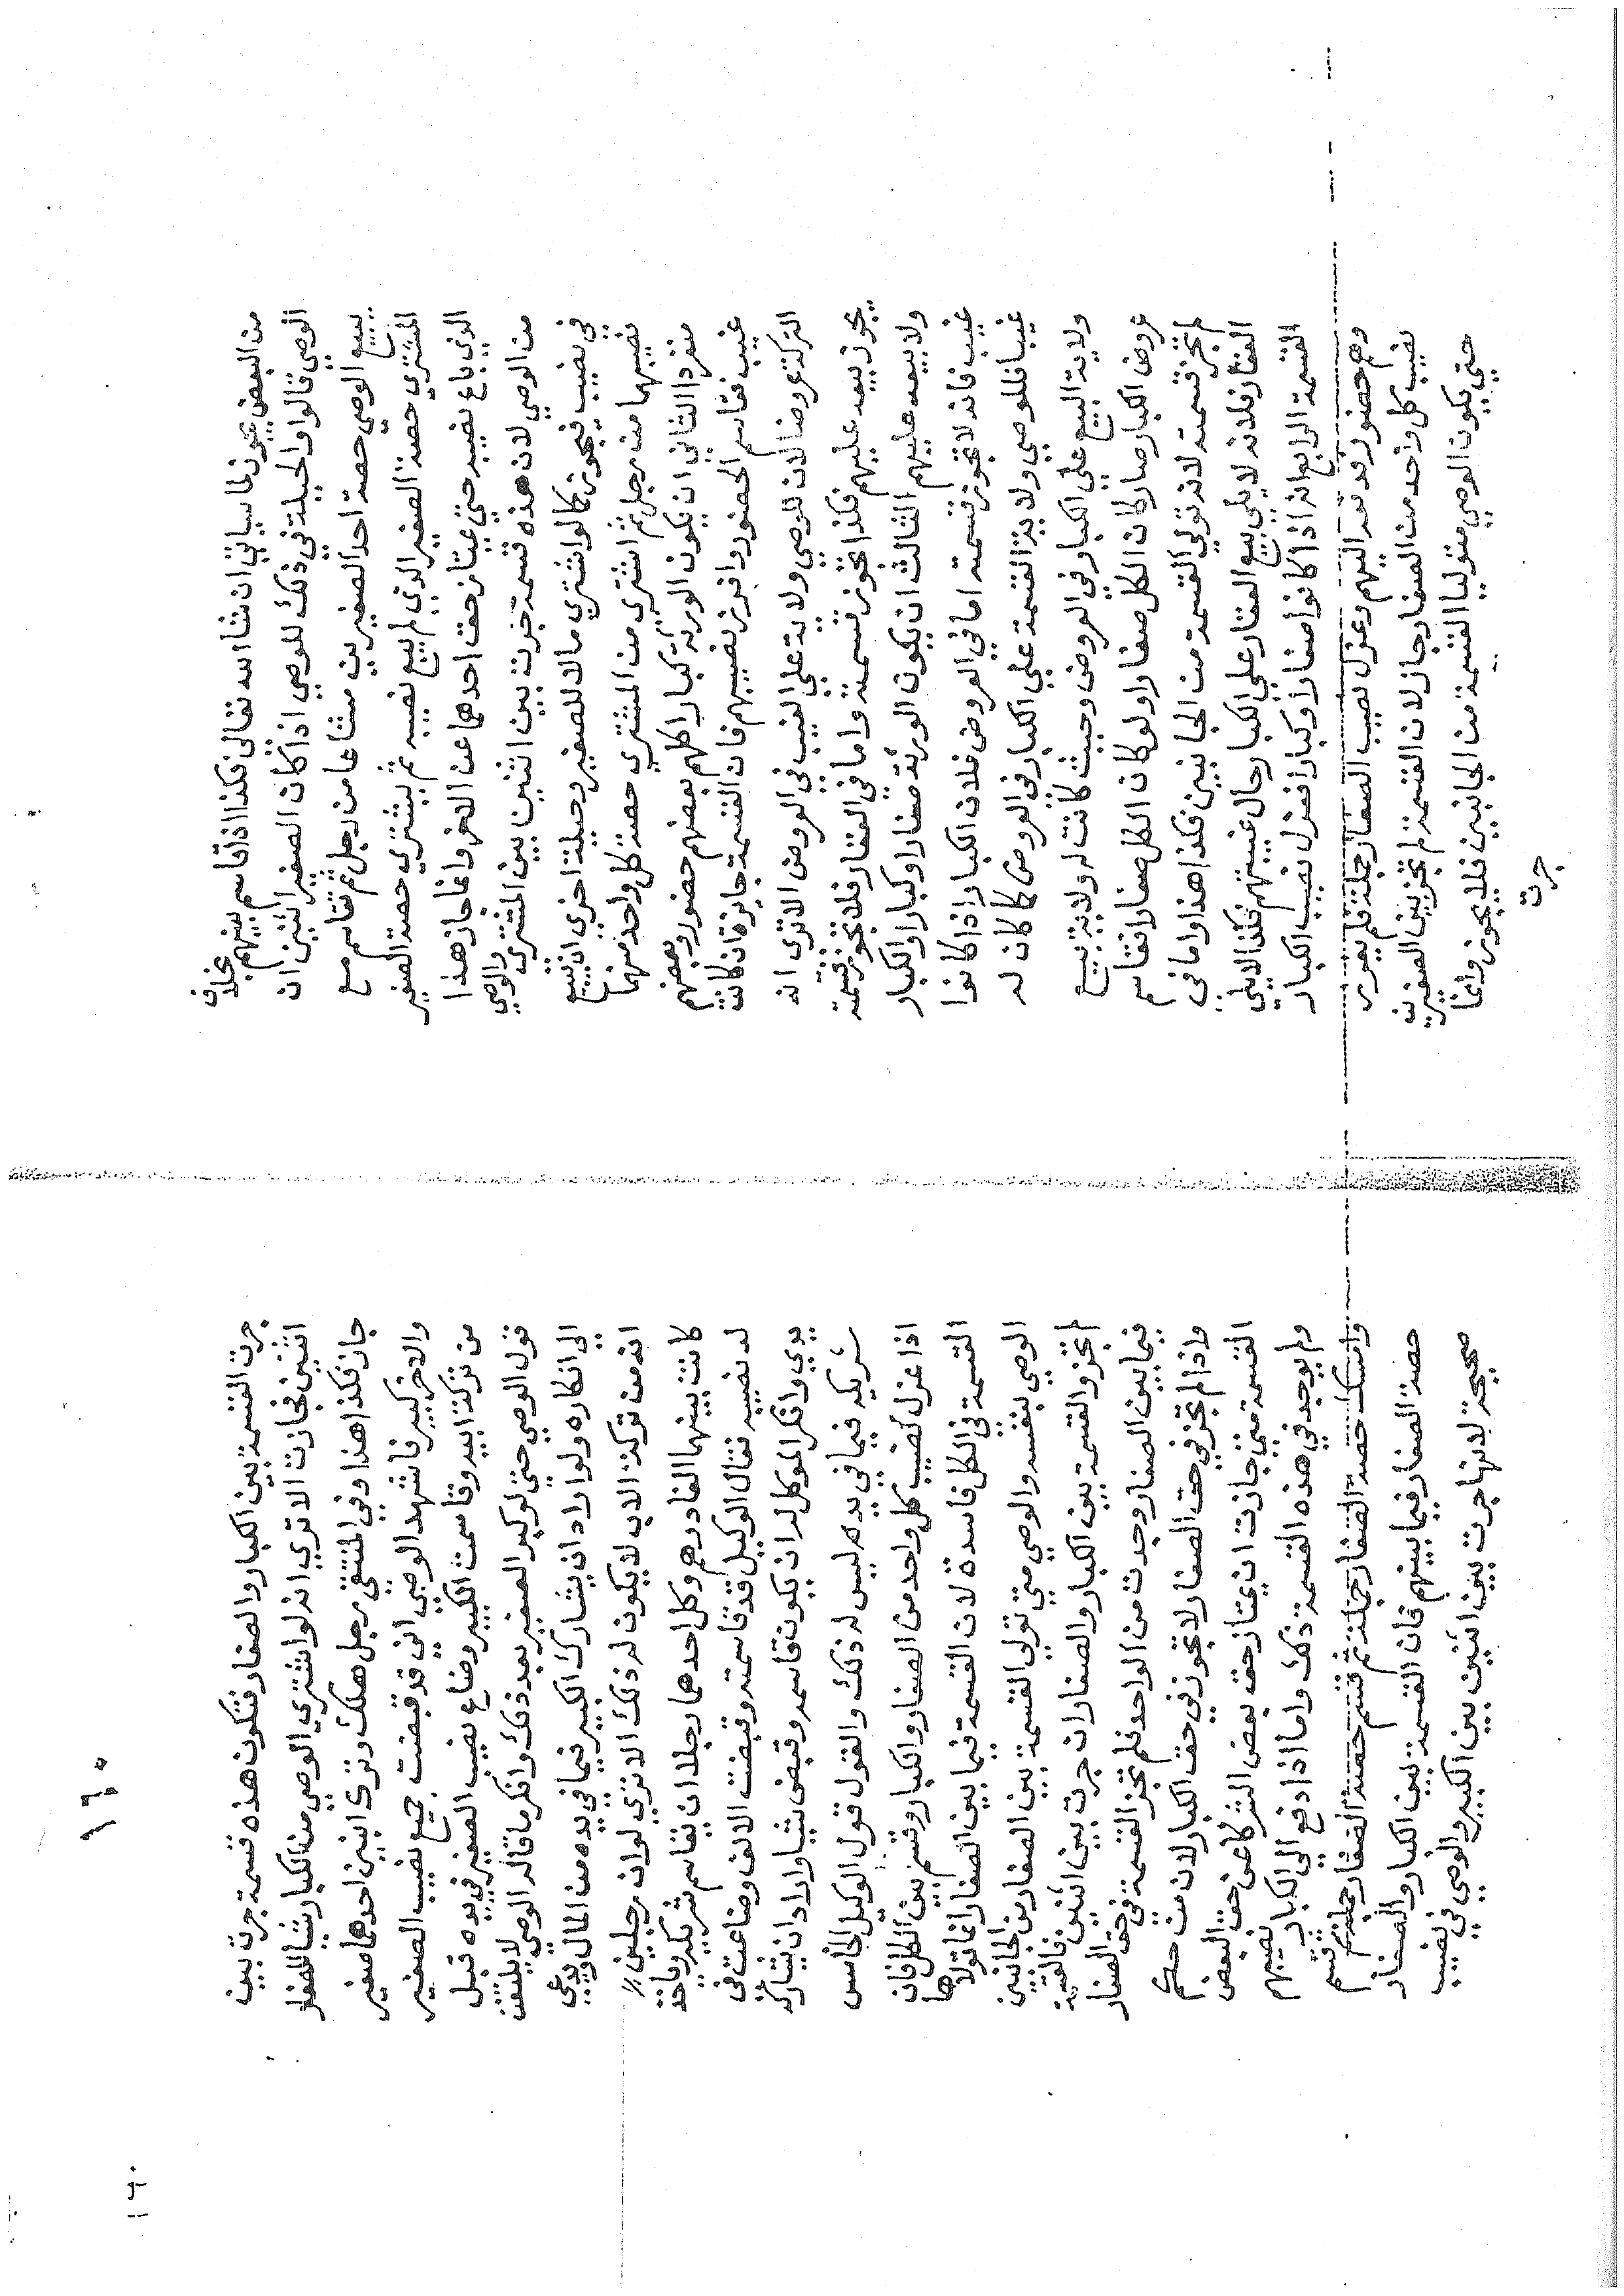 من البعض يجوز لما يأتي ان شا الله تعالى فكذا اذا قاسم بينهم بخلاف
الوصي قالوا والحيلة في ذلك للوصي اذا كان الصغير اثنين ان
يبيع الوصي حصة احد الصغيرين مشاعا من رجل ثم تقاسم مع
المشتري حصة الصغير الذي لم يبع نصيبه ثم يشتري حصة الصغير
الذي باع نصيبه حتي يمتاز حق احدهما عن الاخر وانما جاز هذا
من الوصي لان هذه قسمة جرت بين اثنين بين المشتري والوصي
في نصيب فيجوز كما لو اشتري مالا للصغير وحيلة اخري ان يبيع
نصيبهما من رجل ثم اشتري من المشتري حصة كل واحد منهما
منفردا الثاني ان يكون الورثة كبارا كلهم بعضهم حضور وبعضهم
غيب فقاسم الحضور وافرز نصيبهم فان القسمة جايزة ان كانت
التركة عروضا لان للوصي ولاية علي الغيب في العروض الا تري انه
يجوز بيعه عليهم فكذا تجوز قسمة واما في العقار فلا تجوز قسمة
ولا بيعه عليهم الثالث ان يكون الورثة صغارا وكبارا والكبار
غيب فانه لا تجوز قسمة اما في العروض فلان الكبار اذا كانوا
غيبا فللوصي ولاية القسمة علي الكبار في العروض كما كان له
ولاية البيع علي الكبار في العروض وحيث كانت له ولاية بيع
عروض الكبار صار كان الكل صغارا ولو كان الكل صغارا تقاسم
لم تجز قسمته لانه تولي القسمة من الجانبين فكذا هذا واما في
العقار فلانه لا يلي بيع العقار علي الكبار حال غيبتهم فكذا لا يلي
القسمة الرابع انه اذا كانوا صغارا وكبارا فعزل نصيب الكبار
وهم حضور فدفعه اليهم وعزل نصيب الصغار جملة فلم يفرز
نصيب كل واحد من الصغار جاز لان القسمة لم تجز بين الصغيرين
حتي يكون الوصي متوليا القسمة من الجانبين فلا يجوز وانما
جرت
١٦٠
جرت القسمة بين الكبار والصغار فتكون هذه قسمة جرت بين
اثنين فجازت الا تري انه لو اشتري الوصي من الكبار شيا للصغار
جاز فكذا هذا وفي المنتقي رجل هلك وترك ابنين احدهما صغير
والاخر كبير فاشهد الوصي اني قد قبضت جميع نصيب الصغير
من تركة ابيه وقاسمت الكبير وضاع نصيب الصغير في يده قبل
قول الوصي حتي لو كبر الصغير بعد ذلك وانكر ما قاله الوصي لا يلتفت
الى انكاره ولو اراد ان يشارك الكبير فيما في يده من المال ويدعي
انه من تركة الاب لا يكون له ذلك الا تري لو ان رجلين
كانت بينهما الفا درهم وكل احدهما رجلا ان يقاسم شريكه وياخذ
له نصيبه فقال الوكيل قد قاسمته وقبضت الالف وضاعت في
يدي وانكر الموكل له ان يكون قاسمه وقبض شيا واراد ان يشارك
شريكه فيما في يده ليس له ذلك والقول قول الوكيل الخامس
اذا عزل نصيب كل واحد من الصغار والكبار وقسم بين الكل فان
القسمة في الكل فاسدة لان القسمة فيما بين الصغار انما تولاها
الوصي بنفسه والوصي متي تولي القسمة بين الصغار من الجانبين
لم تجز والقسمة بين الكبار والصغار ان جرت بين اثنين فالقسمة
فيما بين الصغار وجدت من الواحد فلم تجز القسمة في حق الصغار
واذا لم تجز في حق الصغار لا تجوز في حق الكبار لان من حكم
القسمة متي جازت ان يمتاز حق بعض الشركا عن حق البعض
ولم يوجد في هذه القسمة ذلك واما اذا دفع الي الكبار نصيبهم
وامسك حصة الصغار جملة ثم قسم حصة الصغار جملة ثم قسم
حصة الصغار فيما بينهم فان القسمة بين الكبار والصغار
صحيحة لانها جرت بين اثنين بين الكبير والوصي في نصيب
١٦٠